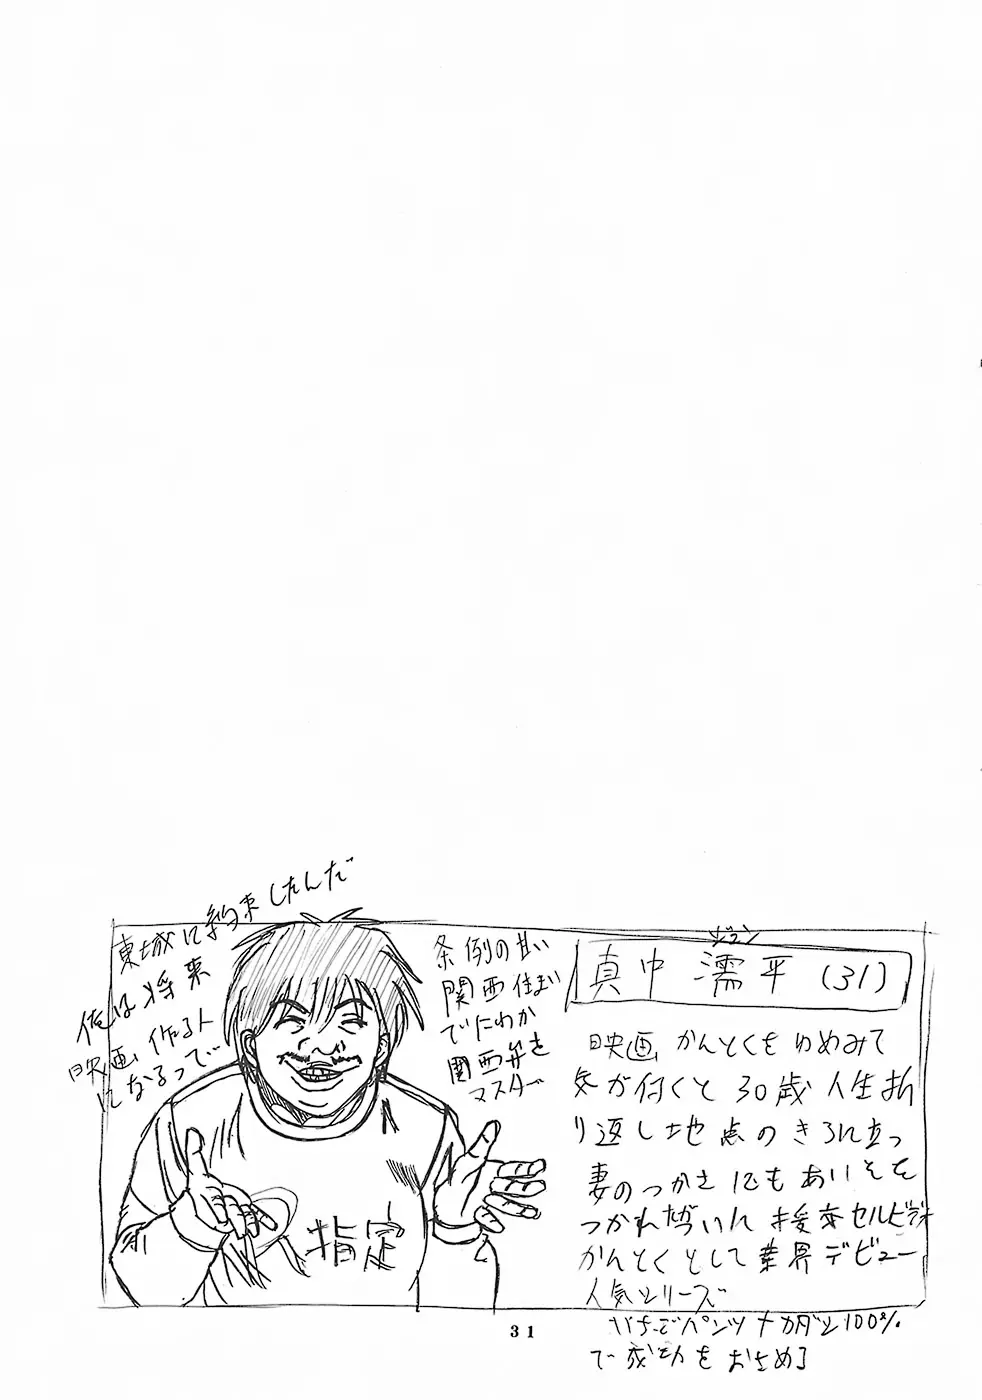 東城に約束したんだ
俺は将来
映画作る人
になるって
条例の甘い
関西住まい
でにわか
関西弁を
マスター
ジュン
真中 濡平 (31)
映画かんとくをゆめみて
気が付くと30歳人生折
り返し地点のきろに立つ
妻のつかさにもあいそを
つかれ 援交セルビデオ
かんとくとして業界デビュー
人気シリーズ
いちごパンツナカダシ100%
で成功をおさめ
指定
31